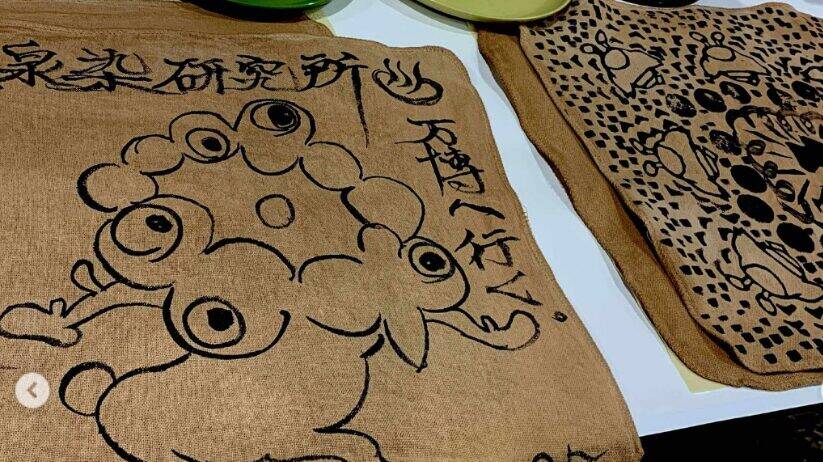 泉染研究所♨
万博へ行く。